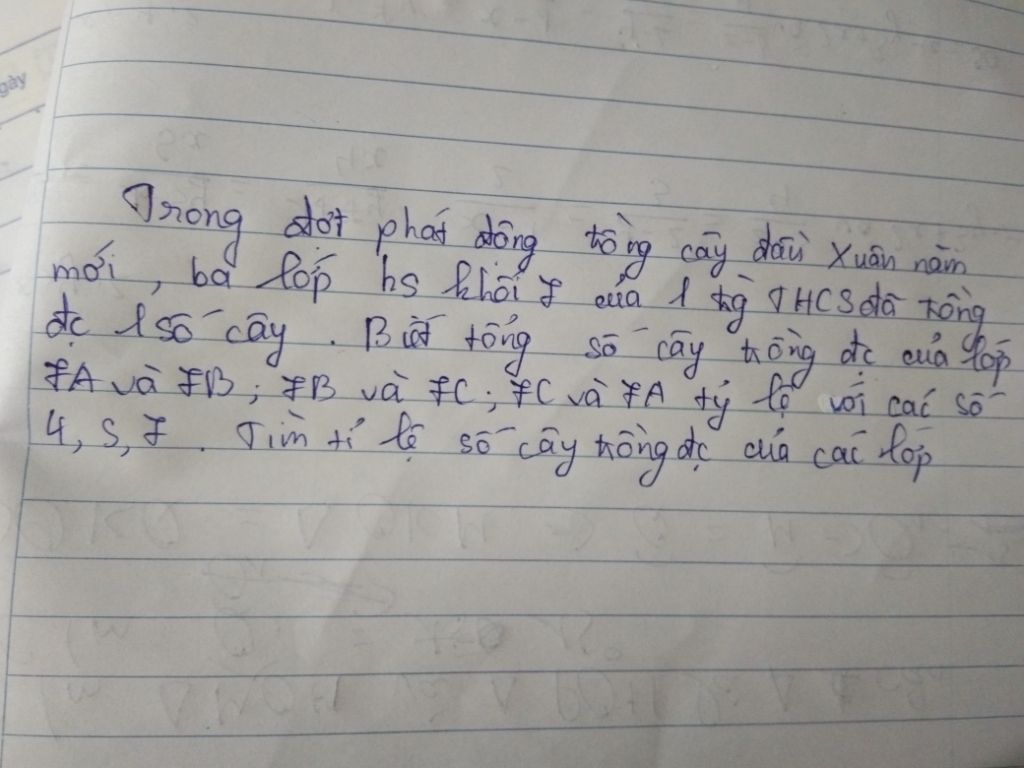 gày
Trong đợt phát động trồng cây đầu xuân năm
mới, ba lớp hs khối 7 của 1 trg THCS đã trồng
đc 1 số cây. Biết tổng số cây trồng đc của lớp
7A và 7B; 7B và 7C; 7C và 7A tỷ lệ với các số
4, 5, 7. Tìm tỉ lệ số cây trồng đc của các lớp